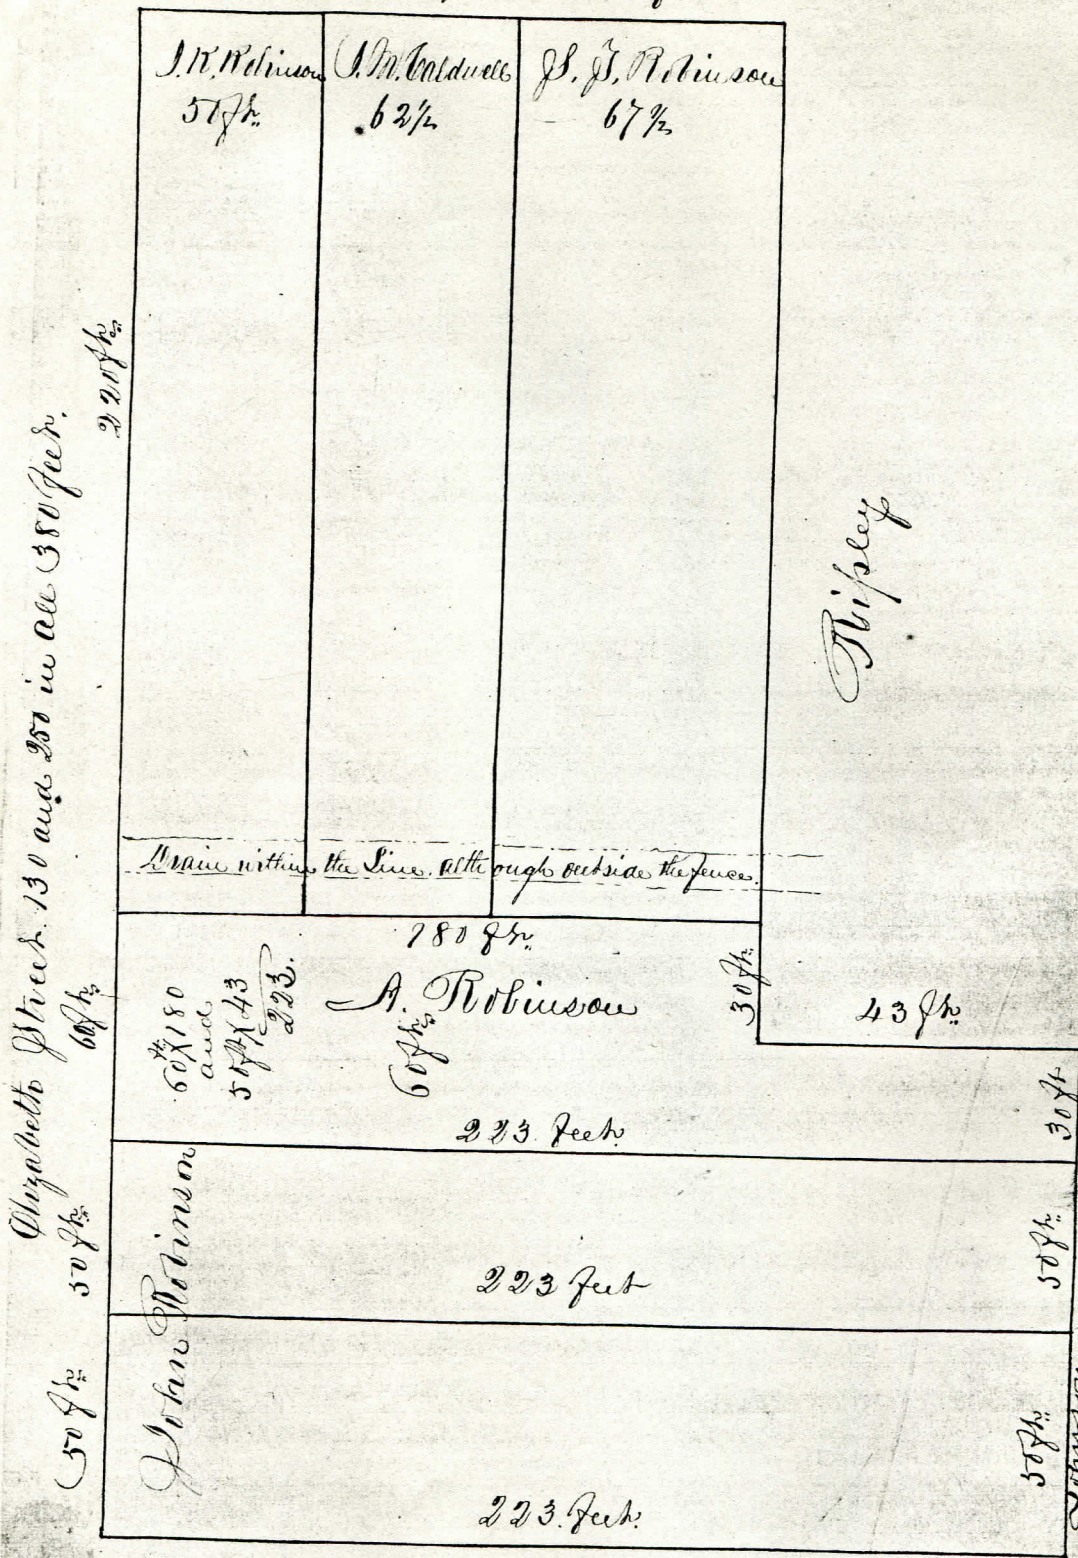 J. K. Robinson
50 ft.
J. M. Caldwell
62 1/2
J. J. Robinson
67 1/2
220 ft.
Elizabeth Street. 130 and 250 in all 380 feet.
Ripley
Drain within the Line. although outside the fence.
180 ft.
60 ft.
60 ft X 180
and
50 ft X 43
223.
A. Robinson
60 ft.
30 ft.
43 ft.
223. feet.
30 ft
50 ft.
John Robinson
223 feet
50 ft.
50 ft.
50 ft.
223. feet.